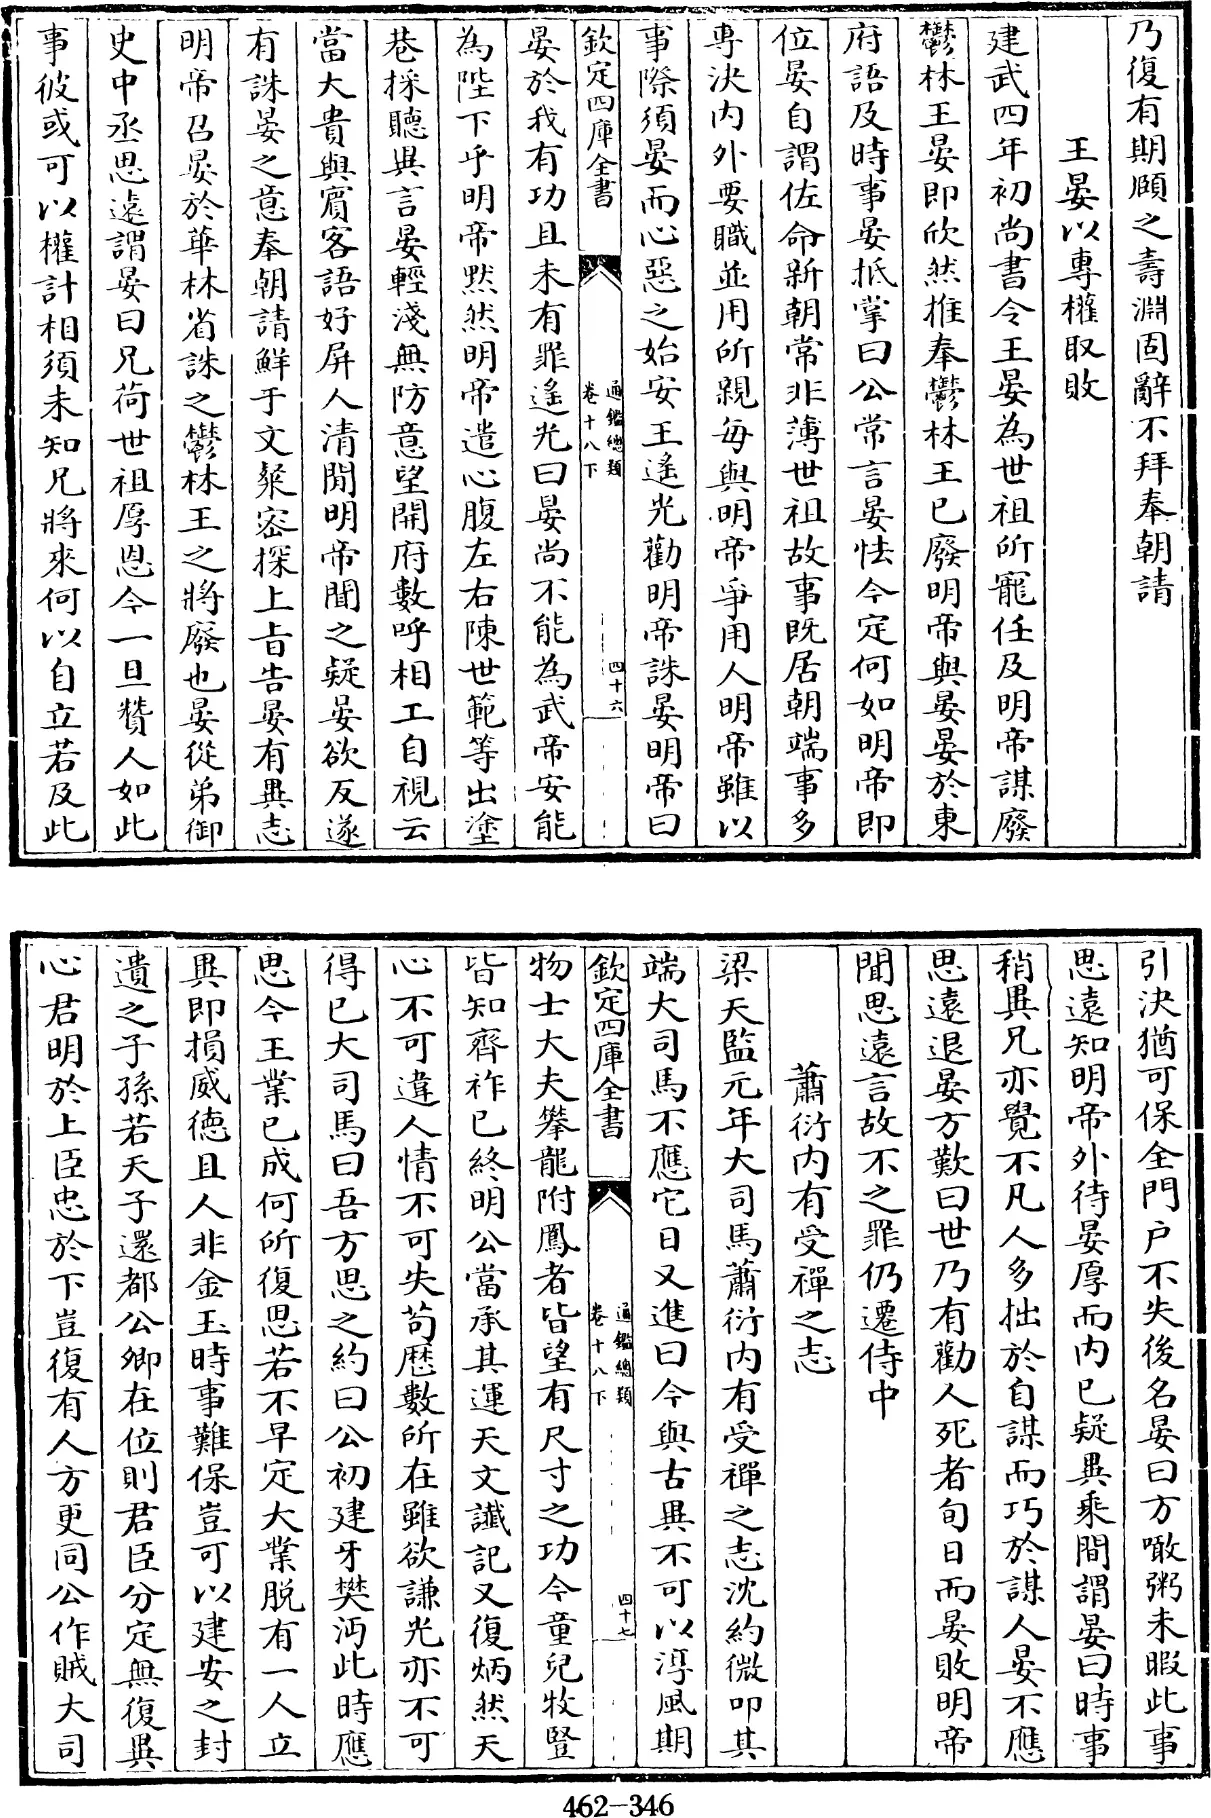 乃復有期頤之壽淵固辭不拜奉朝請
王晏以專權取敗
建武四年初尚書令王晏為世祖所寵任及明帝謀廢
鬱林王晏即欣然推奉鬱林王已廢明帝與晏晏於東
府語及時事晏抵掌曰公常言晏怯今定何如明帝即
位晏自謂佐命新朝常非薄世祖故事既居朝端事多
專決内外要職並用所親毎與明帝爭用人明帝雖以
事際須晏而心惡之始安王遙光勸明帝誅晏明帝曰
欽定四庫全書
通鑑總類
卷十八下
四十六
晏於我有功且未有罪遙光曰晏尚不能為武帝安能
為陛下乎明帝黙然明帝遣心腹左右陳世範等出塗
巷採聽異言晏輕淺無防意望開府數呼相工自視云
當大貴與賓客語好屏人清閒明帝聞之疑晏欲反遂
有誅晏之意奉朝請鮮于文粲密探上㫖告晏有異志
明帝召晏於華林省誅之鬱林王之將廢也晏從弟御
史中丞思遠謂晏曰兄荷世祖厚恩今一旦贊人如此
事彼或可以權計相須未知兄將來何以自立若及此
引決猶可保全門户不失後名晏曰方噉粥未暇此事
思遠知明帝外待晏厚而内已疑異乘間謂晏曰時事
稍異兄亦覺不凡人多拙於自謀而巧於謀人晏不應
思遠退晏方歎曰世乃有勸人死者旬日而晏敗明帝
聞思遠言故不之罪仍遷侍中
蕭衍内有受禪之志
梁天監元年大司馬蕭衍内有受禪之志沈約微叩其
端大司馬不應它日又進曰今與古異不可以淳風期
欽定四庫全書
通鑑總類
卷十八下
四十七
物士大夫攀龍附鳳者皆望有尺寸之功今童兒牧豎
皆知齊祚已終明公當承其運天文讖記又復炳然天
心不可違人情不可失苟歴數所在雖欲謙光亦不可
得已大司馬曰吾方思之約曰公初建牙樊沔此時應
思今王業已成何所復思若不早定大業脱有一人立
異即損威德且人非金玉時事難保豈可以建安之封
遺之子孫若天子還都公卿在位則君臣分定無復異
心君明於上臣忠於下豈復有人方更同公作賊大司
462-346